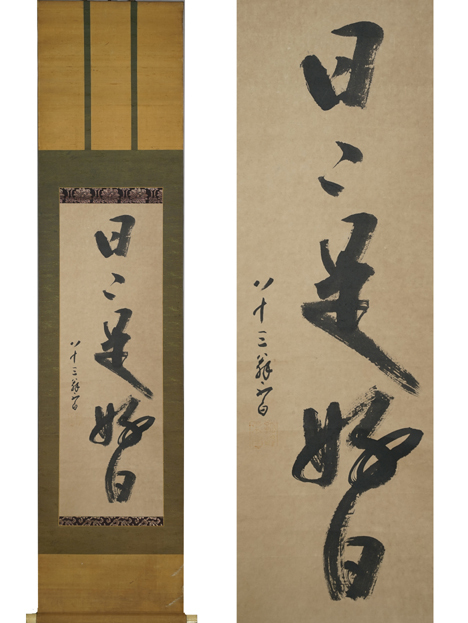 日々是好日
八十三翁
日々是好日
八十三翁